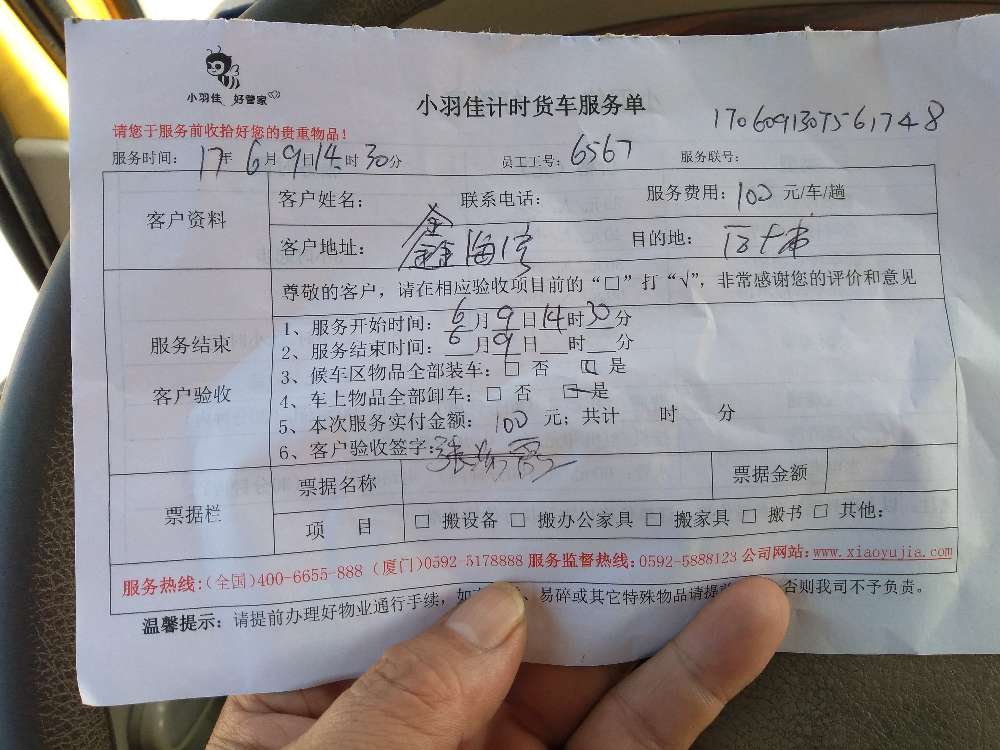 小羽佳 好管家
小羽佳计时货车服务单
1706091307561748
请您于服务前收拾好您的贵重物品！
服务时间： 17年 6月 9日 14时 30分 员工工号：6567 服务联号：
客户资料
客户姓名： 联系电话： 服务费用：100 元/车/趟
客户地址： 鑫海湾 目的地：
尊敬的客户，请在相应验收项目前的“□”打“√”，非常感谢您的评价和意见
服务结束
客户验收
1、服务开始时间：6月9日14时30分
2、服务结束时间：6月9日__时__分
3、候车区物品全部装车：□ 否 □ 是
4、车上物品全部卸车：□ 否 □ 是
5、本次服务实付金额： 100 元；共计 时 分
6、客户验收签字：张
票据栏
票据名称 票据金额
项 目 □ 搬设备 □ 搬办公家具 □ 搬家具 □ 搬书 □ 其他：
服务热线：（全国）400-6655-888（厦门）0592-5178888 服务监督热线：0592-5888123 公司网站：www.xiaoyujia.com
温馨提示：请提前办理好物业通行手续，如 、易碎或其它特殊物品请提 否则我司不予负责。